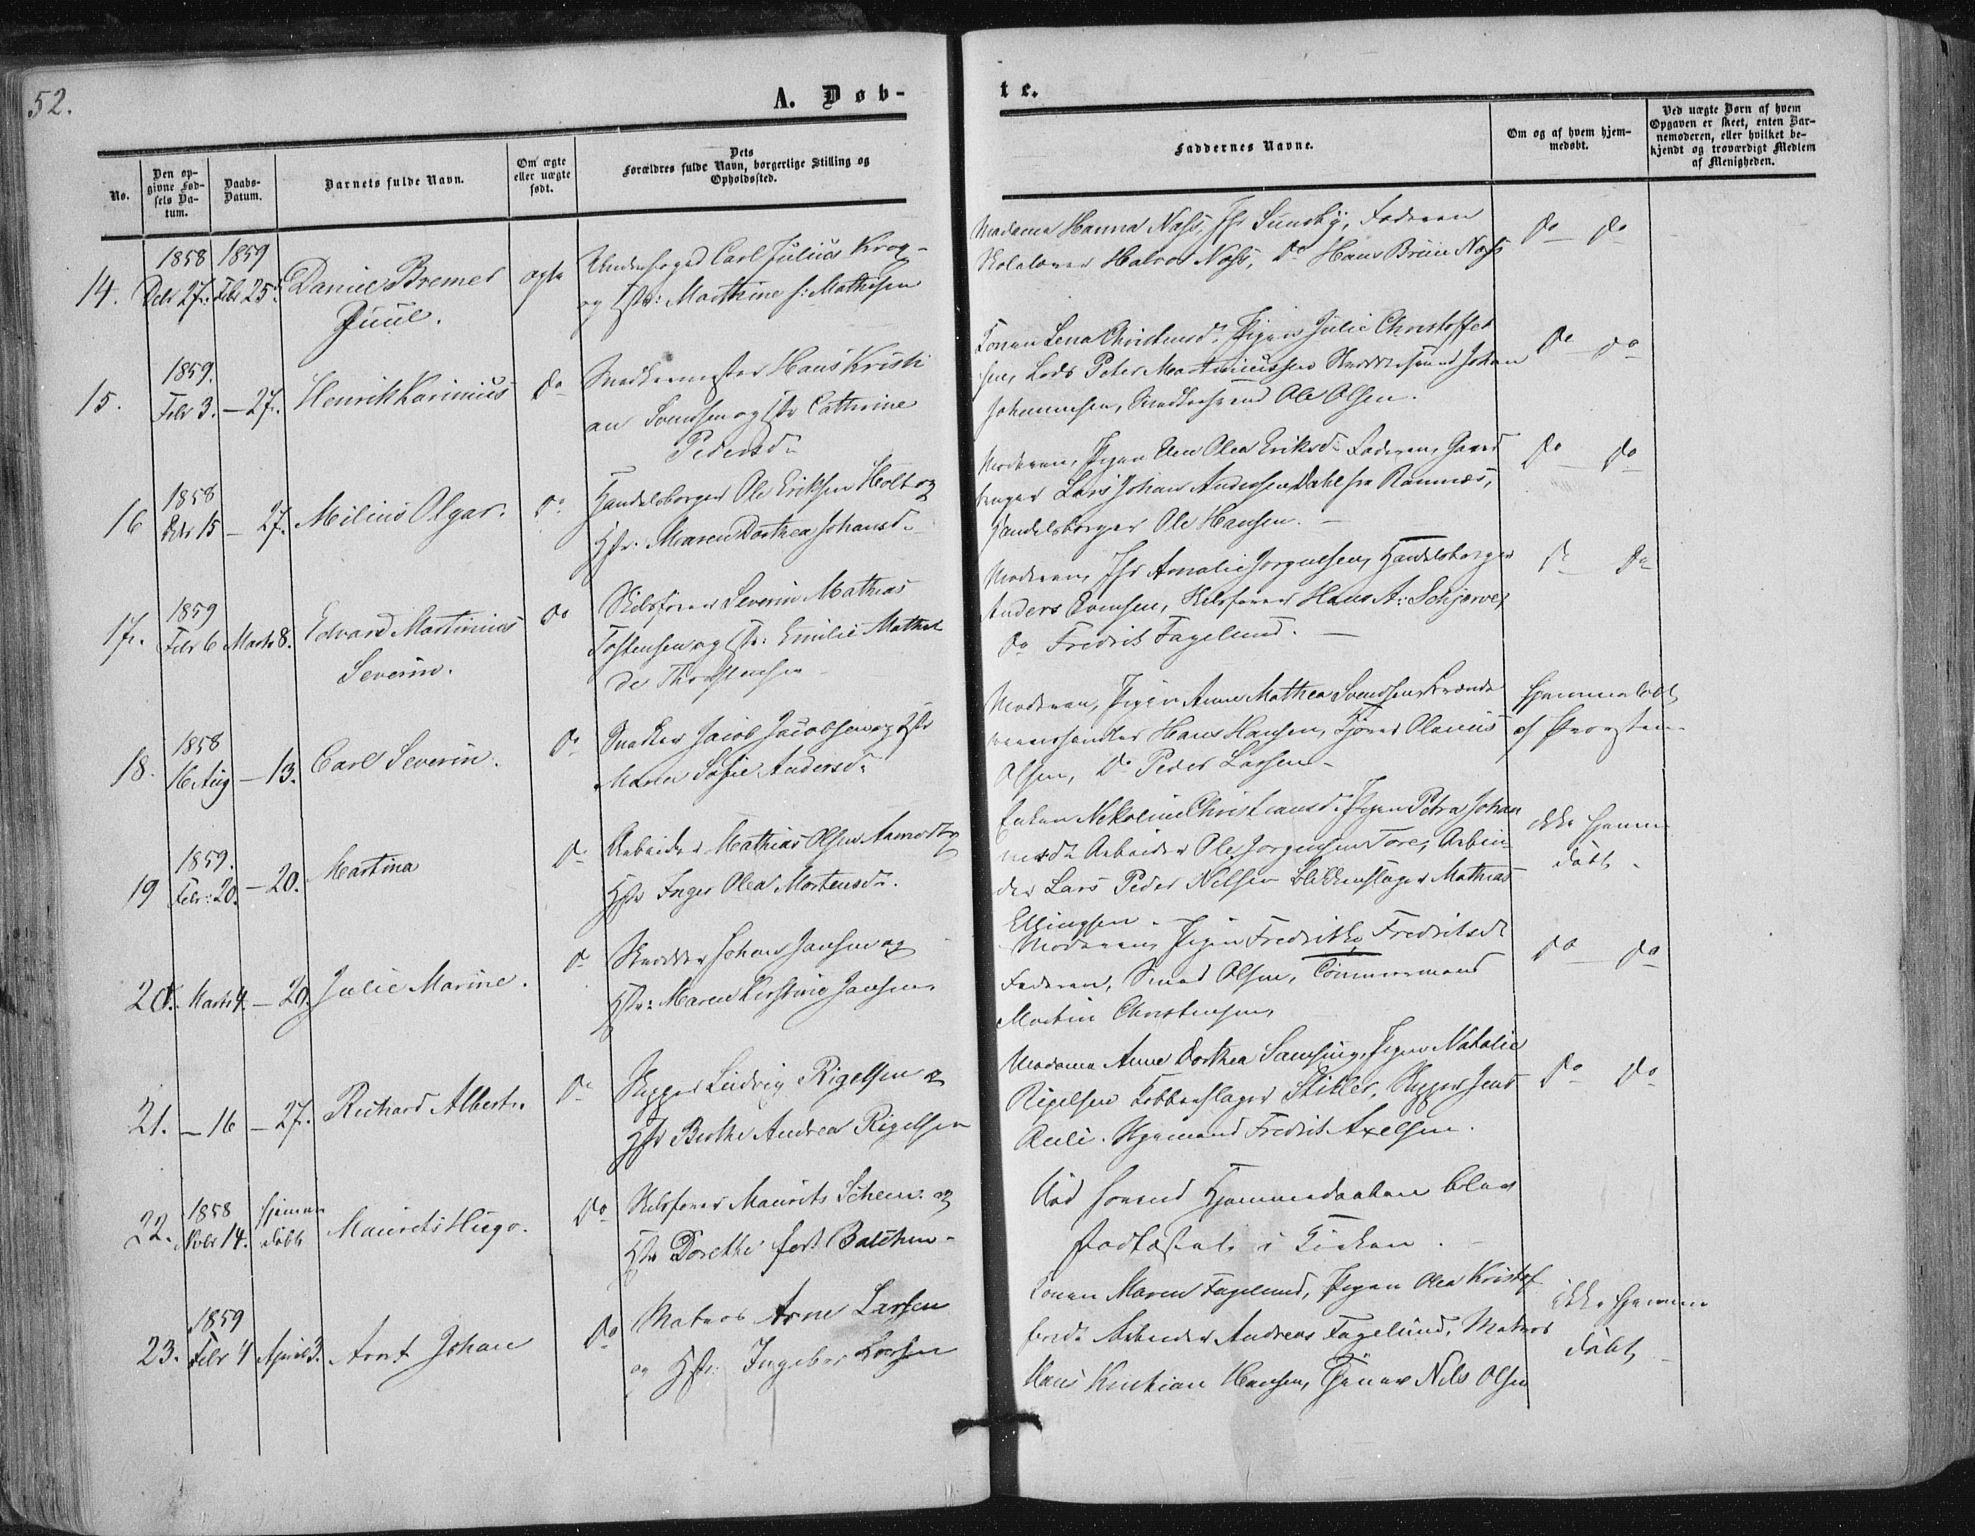 52.
A. Døb-
te.
No.
Den op-
givne Fød-
sels Da-
tum.
Daabs-
Datum.
Barnets fulde Navn.
Om ægte
eller uægte
født.
Dets
Forældres fulde Navn, borgerlige Stilling og
Opholdssted.
Faddernes Navne.
Om og af hvem hjem-
medøbt.
Ved uægte Børn af hvem
Opgaven er skeet, enten Bar-
nemoderen, eller hvilket be-
kjendt og troværdigt Medlem
af Menigheden.
14.
1858
Debr 27.
1859
Febr 25
Daniel Bremer
Juul.
ægte
Underfoged Carl Julius Krog
og Hstr: Marthine f: Mathisen
Madame Hanna Næss, Sundby, Faderen
Skolelærer Halvor Næss, Do Hans Bruun Næss
Do — Do
15.
1859.
Febr 3.
— 27.
Henrik Karinius
Do
Snedkermester Hans Kristi
an Svendsen og Hstr Cathrine
Pedersdr
Konen Lena Christensdr Pigen Julie Christoffer
sen, Lods Peter Martinussen Skræddersvend Johan
Johannesen, Snedkersvend Ole Olsen.
Do — Do
16
1858
Debr 15
— 27.
Milius Olgar.
Do
Handelsborger Ole Eriksen Holt og
Hstr. Maren Dorthea Johansdr
Moderen, Pigen Olea Eriksdr Faderen, Gaard
bruger Lars Johan Andersen Dahl fra Ramnæs,
Handelsborger Ole Hansen. —
Do Do
17.
1859
Febr 6
Marts 8.
Edvard Martinius
Severin.
Do
Skibsfører Severin Mathias
Tostensen og Hstr: Emilie Mathil
de Thorstensen
Moderen, Amalie Jørgensen, Handelsborger
Anders Evensen, Skibsfører Hans A: Schjerve,
Do Fredrik Fagelund. —
Do Do
18.
1858
16 Aug
— 13.
Carl Severin.
Do
Snedker Jacob Jacobsen og Hstr
Maren Sofie Andersdr
Moderen, Pigen Anne Mathea Svendsen
Hans Hansen, Olaves
Olsen, Do Peder Larsen —
Hjemmedøbt
af Provsten
19
1859.
Febr: 20.
— 20.
Martina
Do
Arbeider Mathias Olsen Aamodt og
Hstr Inger Olea Mortensdr.
Enken Nikoline Christiansdr Pigen Petra Johan
nesdr Arbeider Ole Jørgensen Arbei
der Lars Peder Nilsen Blikkenslager Mathias
Ellingsen.
ikke hjemme
døbt
20.
Marts 4.
— 20.
Julie Marine.
Do
Skrædder Johan Jansen og
Hstr: Maren Kirstine Jansen.
Moderen, Pigen Fredrikke Fredriksdr
Faderen, Smed Olsen, Tømmermand
Martin Christensen,
Do — Do
21.
— 16
— 27.
Richard Albert.
Do
Skipper Ludvig Rigelsen og
Hstr Berthe Andrea Rigelsen
Madame Anne Dorthea Samsing, Pigen Natalie
Rigelsen Kobberslager Stikler, Skipper Jens
Fredrik Axelsen.
Do Do
22.
1858
Novbr 14.
hjemme
døbt
Maurits Hugo.
Do
Skibsfører Maurits Schem: og
Hstr Dorethe født Balchen.
Ved Hjemmedaaben blev
i Kirken. —
23.
1859
Febr 4
April 3.
Arnt Johan
Do
Matros Arne Larsen
og Hstr. Ingebor Larsen
Konen Maren Fagelund, Pigen Olea Kristof
fersdr Arbeider Andreas Fagelund, Matros
Hans Kristian Hansen, Tjener Nils Olsen
ikke hjemme
døbt